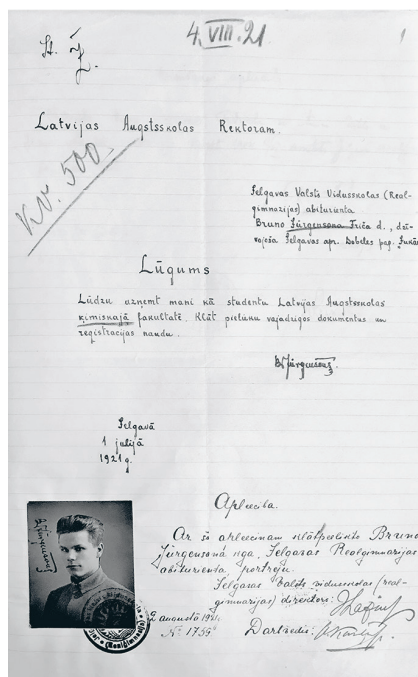 4. VIII. 21
1
St. Ž.
Latvijas Augstsskolas Rektoram.
Kv. 500
Jelgavas Valsts Vidusskolas (Real-
ģimnazijas) abiturienta
Bruno Jürgensona Friča d., dzī-
vojoša Jelgavas apr. Dobeles pag.
Lūgums
Lūdzu uzņemt mani kā studentu Latvijas Augstsskolas
ķimiskajā fakultatē. Klāt pielieku vajadzīgos dokumentus un
reģistracijas naudu.
B. Jürgensons
Jelgavā
1 julijā
1921 g.
Apliecība.
Ar šo apliecinam klātpiestipr. Bruno
Jürgensona kga, Jelgavas Realģimnazijas
abiturienta portreju.
Jelgavas valsts vidusskolas (real-
ģimnazijas) direktors:
2 augustā 1921.
Nº 1739
Darbvedis:
B. Jürgensons